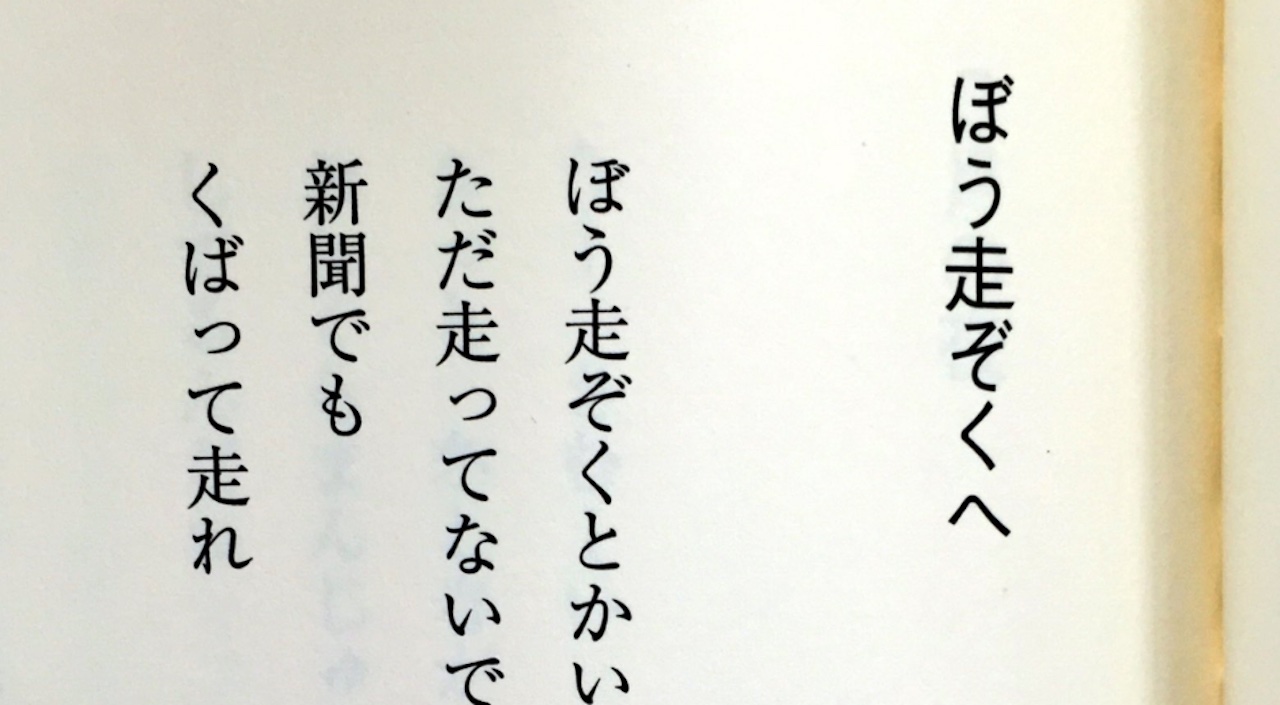 ぼう走ぞくへ
ぼう走ぞくとかい
ただ走ってないで
新聞でも
くばって走れ